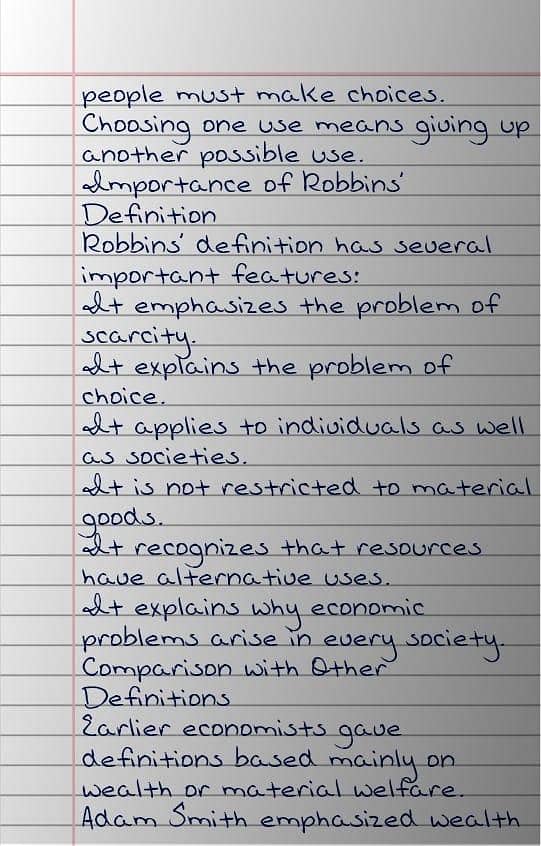 people must make choices.
Choosing one use means giving up
another possible use.
Importance of Robbins'
Definition
Robbins' definition has several
important features:
It emphasizes the problem of
scarcity.
It explains the problem of
choice.
It applies to individuals as well
as societies.
It is not restricted to material
goods.
It recognizes that resources
have alternative uses.
It explains why economic
problems arise in every society.
Comparison with Other
Definitions
Earlier economists gave
definitions based mainly on
wealth or material welfare.
Adam Smith emphasized wealth